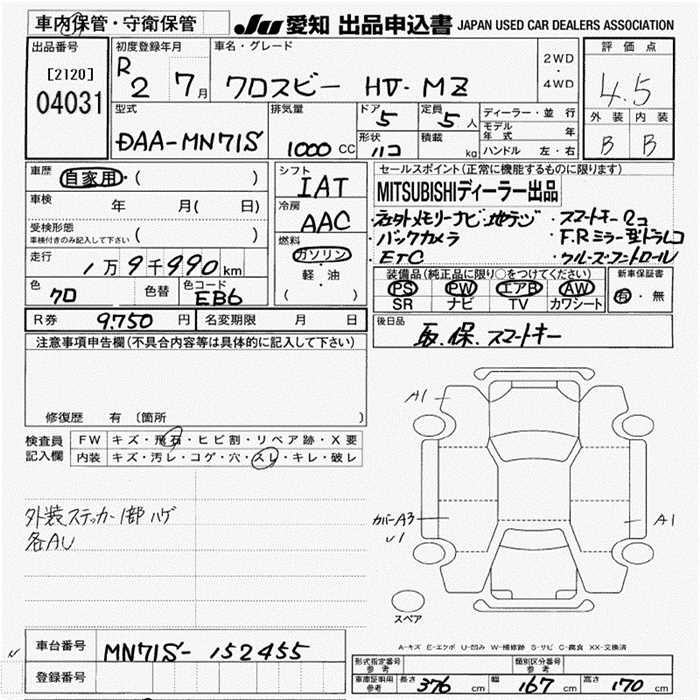 車内保管・守衛保管
JU 愛知 出品申込書 JAPAN USED CAR DEALERS ASSOCIATION
出品番号
[2120]
04031
初度登録年月
R2 7月
車名・グレード
クロスビー HV・MZ
2WD
・
4WD
評価点
4.5
外装 内装
B B
型式
DAA-MN71S
排気量
1000 CC
ドア 5
形状 ハコ
定員 5人
積載 kg
ディーラー・並行
モデル年式 年
ハンドル 左・右
車歴 自家用・( )
車検 年 月( 日)
受検形態
車検付きのみ記入して下さい ( )
走行 1万9千990km
色 クロ 色替 色コード EB6
シフト
IAT
冷房
AAC
燃料
ガソリン
・
軽・油
( )
セールスポイント(正常に機能するものに限ります)
MITSUBISHIディーラー出品
・社外メモリーナビ・地デジ ・スマートキー2コ
・バックカメラ ・F.Rミラー型ドラレコ
・ETC ・クルーズ・コントロール
装備品(純正品に限り○をつけてください)
PS PW エアB AW
SR ナビ TV カワシート
新車保証書
有・無
R券 9.750円 名変期限 月 日
後日品
取.保.スマートキー
注意事項申告欄(不具合内容等は具体的に記入して下さい)
修復歴 有 〔箇所 〕
検査員記入欄
FW キズ・飛石・ヒビ割・リペア跡・X要
内装 キズ・汚レ・コゲ・穴・スレ・キレ・破レ
外装ステッカー1部ハゲ
各AU
A1
カバーA3
U1
A1
スペア
A-キズ E-エクボ U-凹み W-補修跡 S-サビ C-腐食 XX-交換済
車台番号 MN71S-152455
登録番号
形式指定番号
参考
類別区分番号
参考
車庫証明用
参考
長さ 376cm 幅 167cm 高さ 170cm